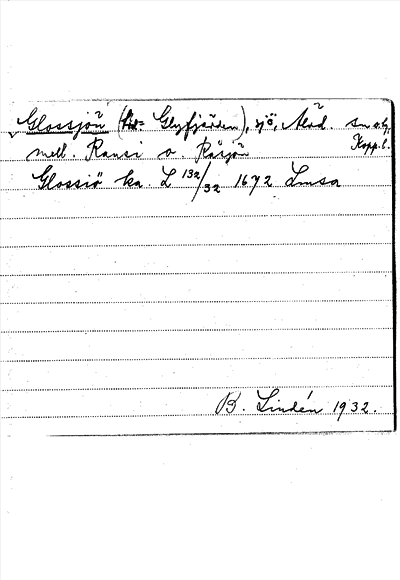 Glossjön (= Glysjärden), sjö, Älvd. sn o hg,
mell. Ransi o Råsjön Kopp. l.
Glossiö ka. L 132/32 1672 Lmsa
B. Lindén 1932.